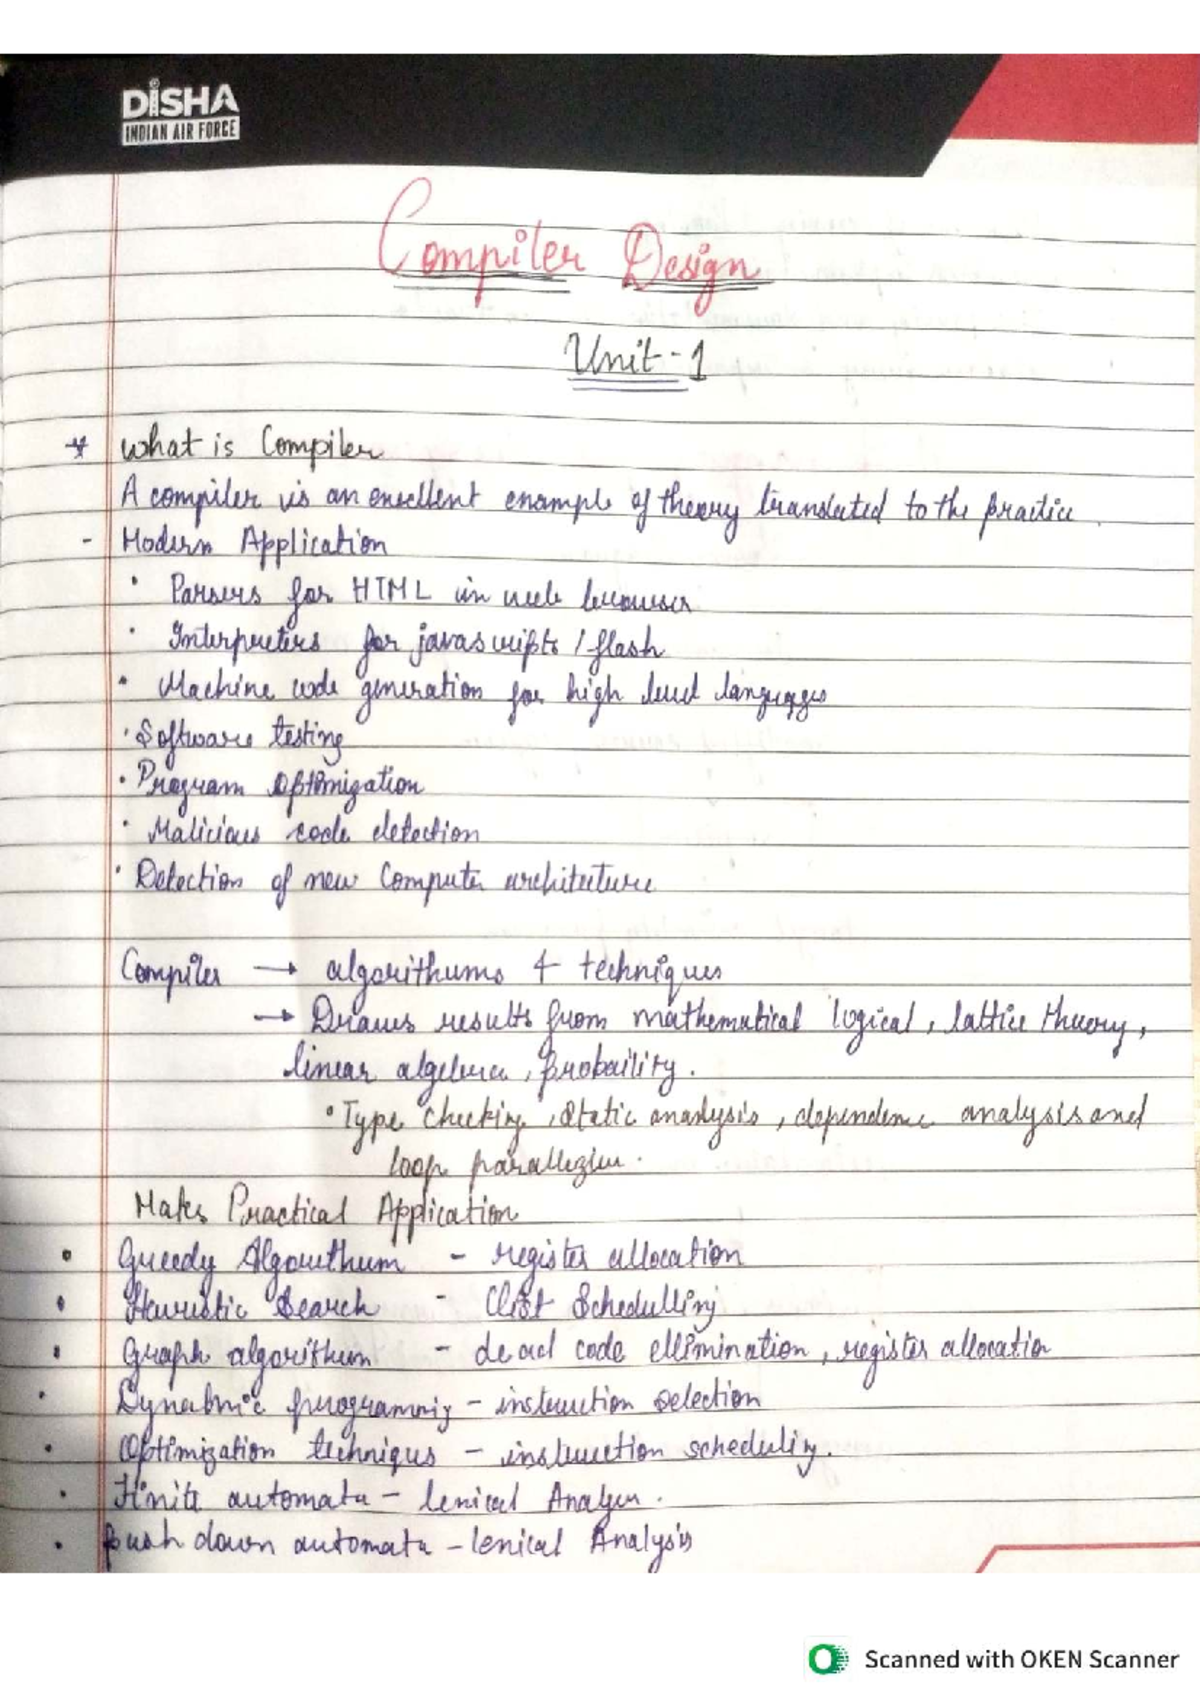 DISHA
INDIAN AIR FORCE
Compiler Design
Unit-1
* What is Compiler
A compiler is an excellent example of theory translated to the practice.
- Modern Application
• Parsers for HTML in web browser
• Interpreters for javascripts / flash
• Machine code generation for high level languages
• Software testing
• Program optimization
• Malicious code detection
• Detection of new Computer architecture
Compiler → algorithums & techniques
→ Draws results from mathematical logical, lattice theory,
linear algebra, probaility.
• Type checking, Static analysis, dependence analysis and
loop
Makes Practical Application
• Greedy Algorithum - register allocation
• Heuristic Search - List Schedulling
• Graph algorithum - dead code ellimination, register allocation
• Dynabmic programmig - instruction selection
• Optimization techniqus - instruction scheduling.
• Finite automata - lexical Analyser.
• push down automata - lexical Analysis
Scanned with OKEN Scanner